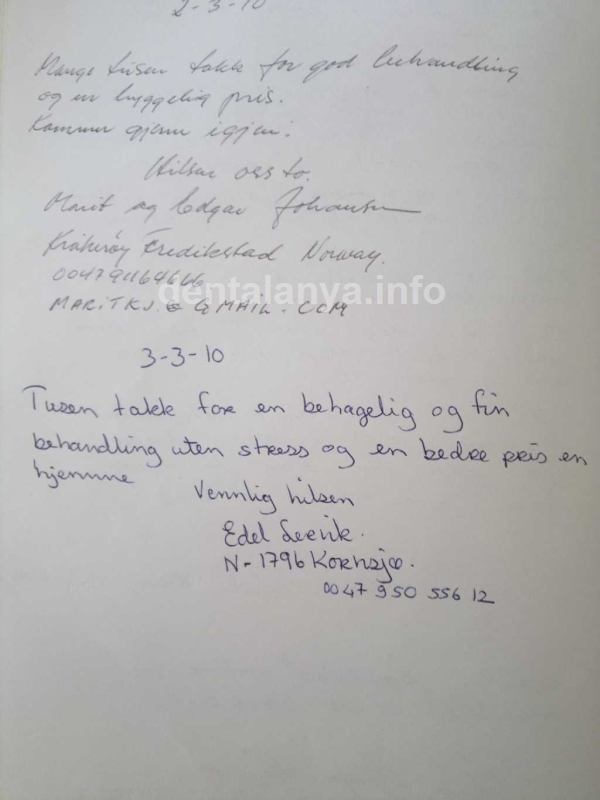 2-3-10
Mange tusen takk for god behandling
og en hyggelig pris.
Kommer gjerne igjen!
Hilsen oss to.
Marit og Edgar Johansen
Kråkerøy Fredikstad Norway.
004791164666
MARITKJ.@GMAIL.COM
dentalanya.info
3-3-10
Tusen takk for en behagelig og fin
behandling uten stress og en bedre pris en
hjemme
Vennlig hilsen
Edel
N-1796 Kornsjø.
0047 950 556 12